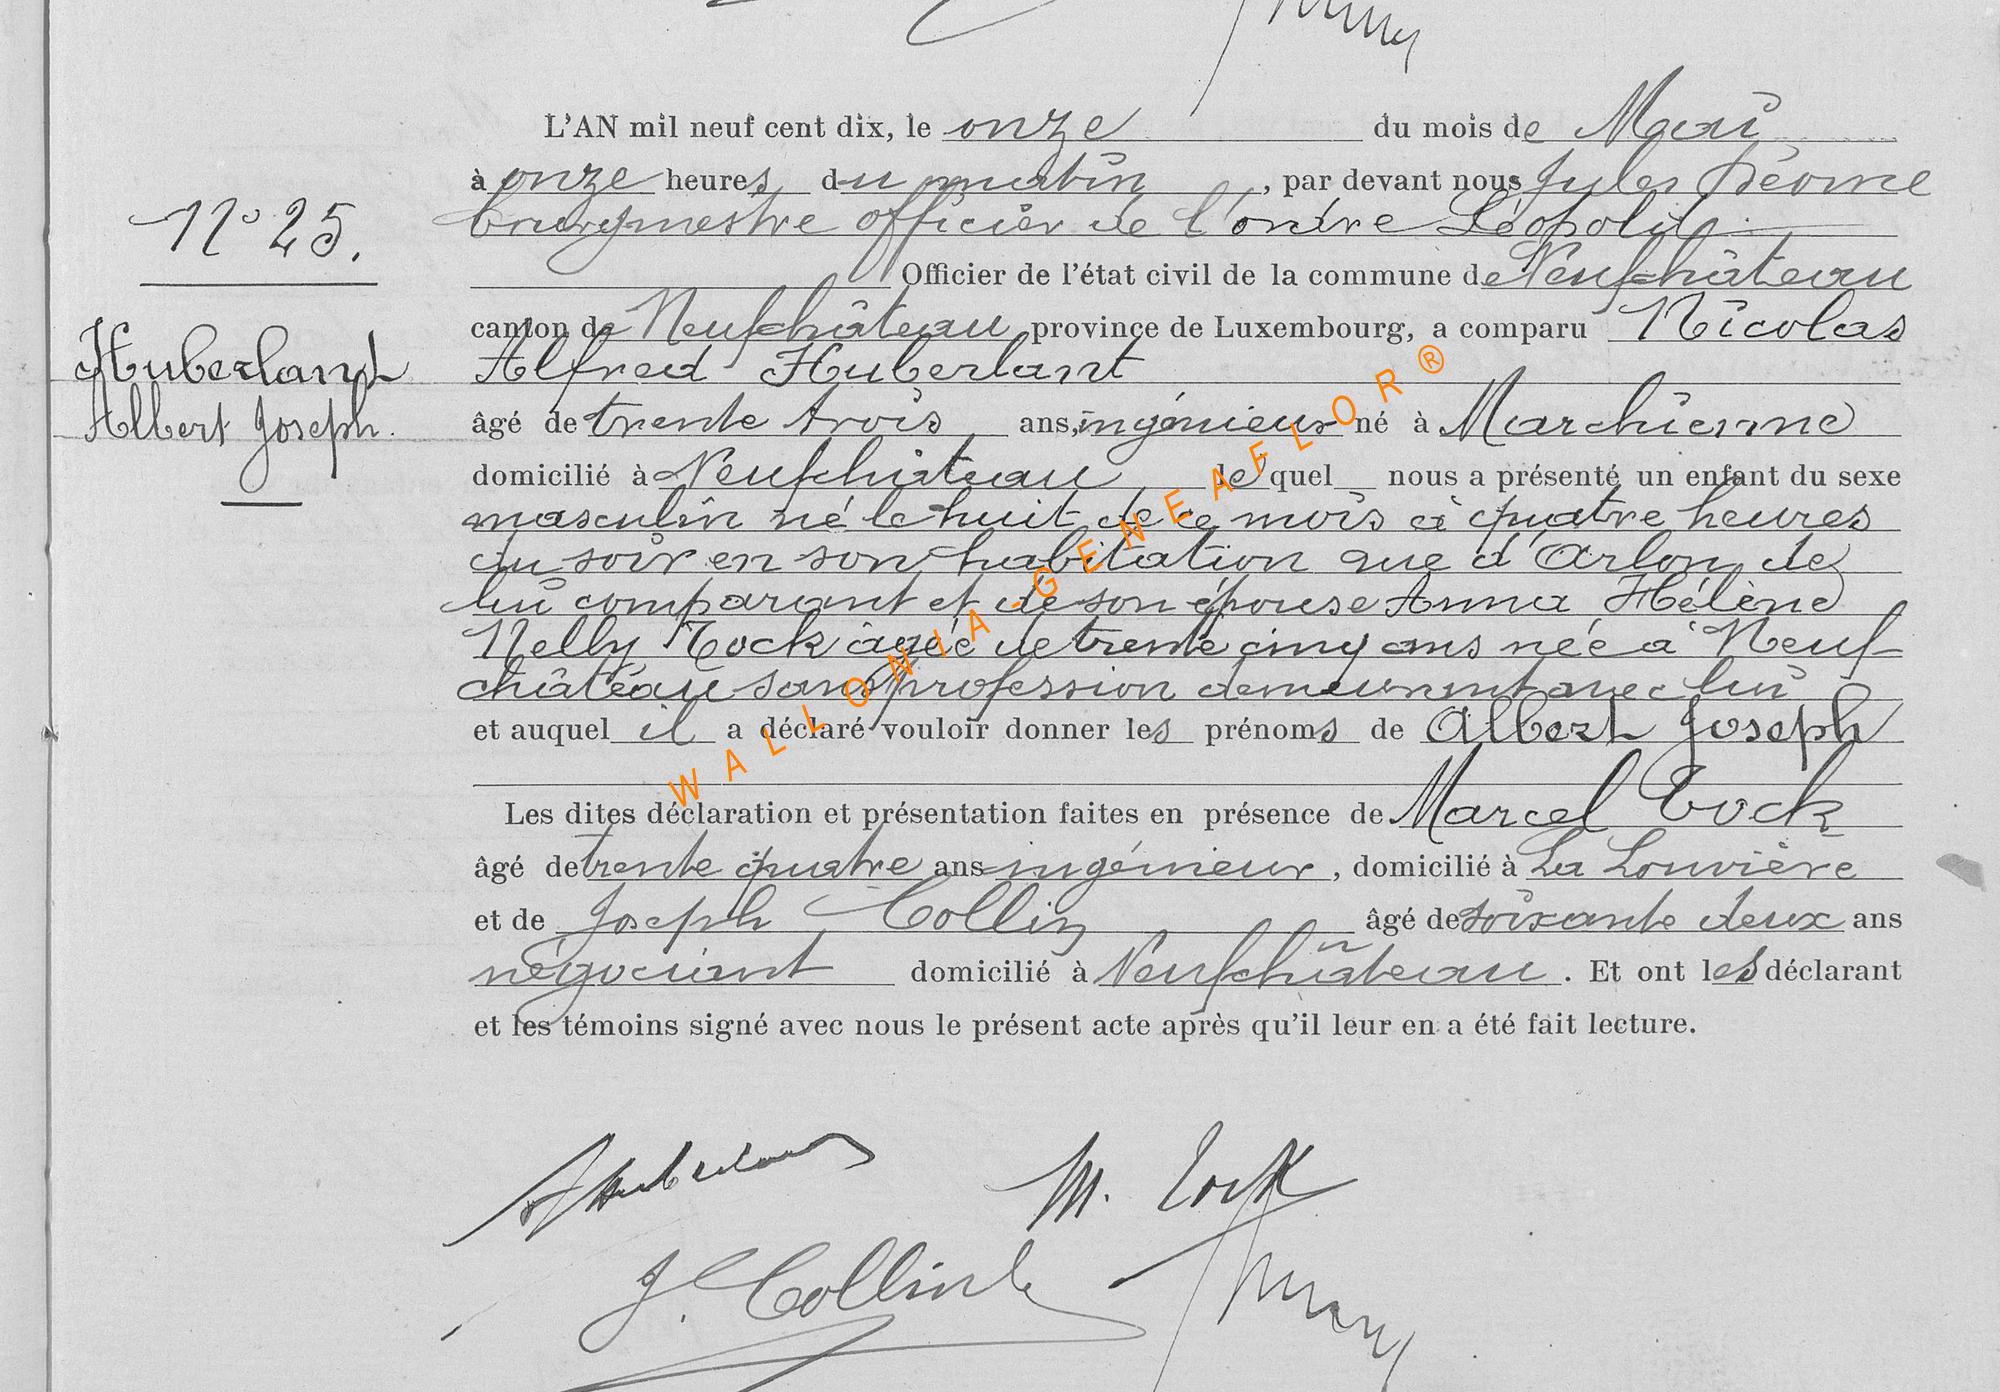 L'AN mil neuf cent dix, le onze du mois de Mai
à onze heures du matin, par devant nous Jules
bourgmestre officier de l'ordre Léopold
Officier de l'état civil de la commune de Neufchâteau
N° 25.
canton de Neufchâteau province de Luxembourg, a comparu Nicolas
Alfred Huberlant
Huberlant
Albert Joseph.
âgé de trente trois ans, ingénieur né à Marchienne
domicilié à Neufchâteau lequel nous a présenté un enfant du sexe
masculin né le huit de ce mois à quatre heures
du soir en son habitation rue d'Arlon de
lui comparant et de son épouse Anna Hélène
Nelly Tock âgée de trente cinq ans née à Neuf-
château sans profession demeurant avec lui
et auquel il a déclaré vouloir donner les prénoms de Albert Joseph
Les dites déclaration et présentation faites en présence de Marcel Tock
âgé de trente quatre ans ingénieur, domicilié à La Louvière
et de Joseph Collin âgé de soixante deux ans
négociant domicilié à Neufchâteau. Et ont les déclarant
et les témoins signé avec nous le présent acte après qu'il leur en a été fait lecture.
A Huberlant M. Tock
J. Collin
WALLONIA-GENEAFLOR®